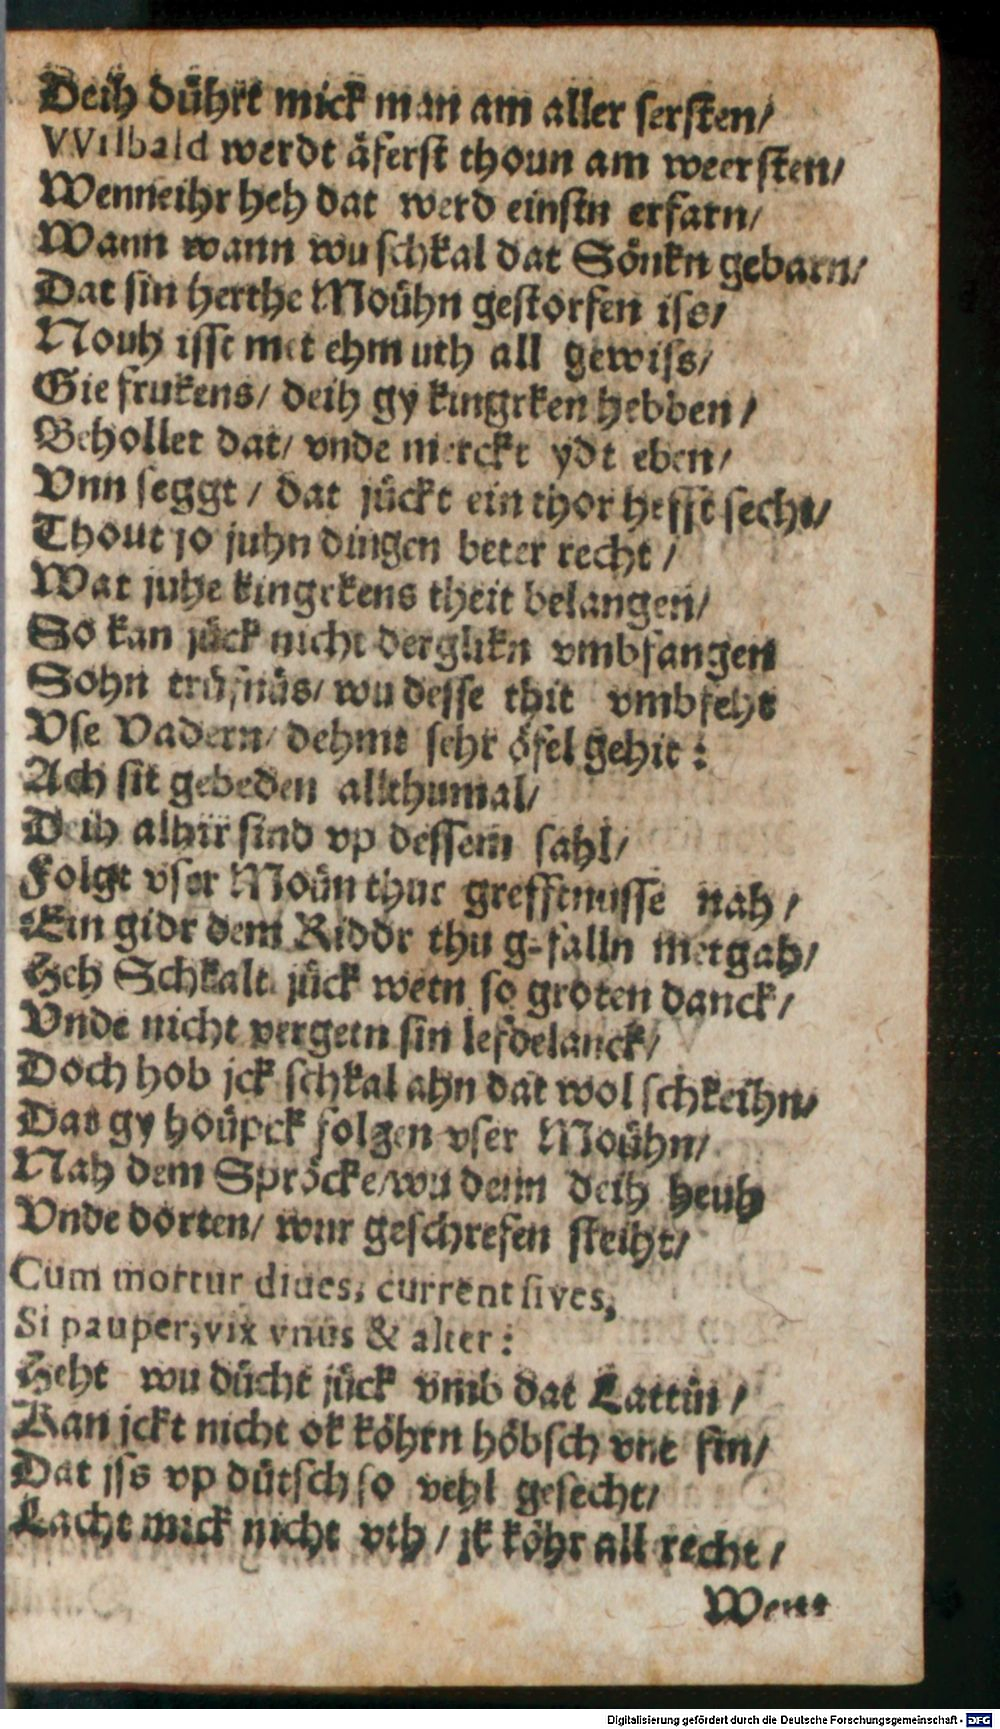 Deih dührt mick man am aller sersten/
VVilbald werdt äferst thoun am weersten/
Wenneihr heh dat werd einstn erfarn/
Wann wann wu schkal dat Sönkn gebarn/
Dat sin herthe Moühn gestorfen iss/
Nouh isst met ehm uth all gewiss/
Gie frukens/ deih gy kingrken hebben/
Behollet dat/ vnde merckt ydt eben/
Vnn seggt/ dat jückt ein thor hefft secht/
Thout jo juhn dingen beter recht/
Wat juhe kingrkens theit belangen/
So kan jück nicht derglikn vmbfangen
Sohn trüfnüs/ wu desse thit vmbfeht
Vse Vadern/ dehmt sehr öfel gehit:
Ach sit gebeden allthumal/
Deih alhir sind vp dessem sahl/
Folgt vser Moün thur grefftnusse nah/
Ein gidr dem Riddr thu g-falln metgah/
Heh Schkalt jück wetn so groten danck/
Vnde nicht vergetn sin lefdelanck/
Doch hob jck schkal ahn dat wol schkeihn/
Dat gy houpck folgen vser Moühn/
Nah dem Spröcke/wu denn deih heuh
Vnde dorten/ wur geschrefen steiht/
Cum mortur diues, current sives,
Si pauper, vix vnus & alter:
Heht wu dücht jück vmb dat Lattin/
Kan jckt nicht ok köhrn höbsch vnt fin/
Dat jss vp dütsch so vehl gesecht/
Lacht mick nicht vth/ jk köhr all recht/
Digitalisierung gefördert durch die Deutsche Forschungsgemeinschaft - DFG